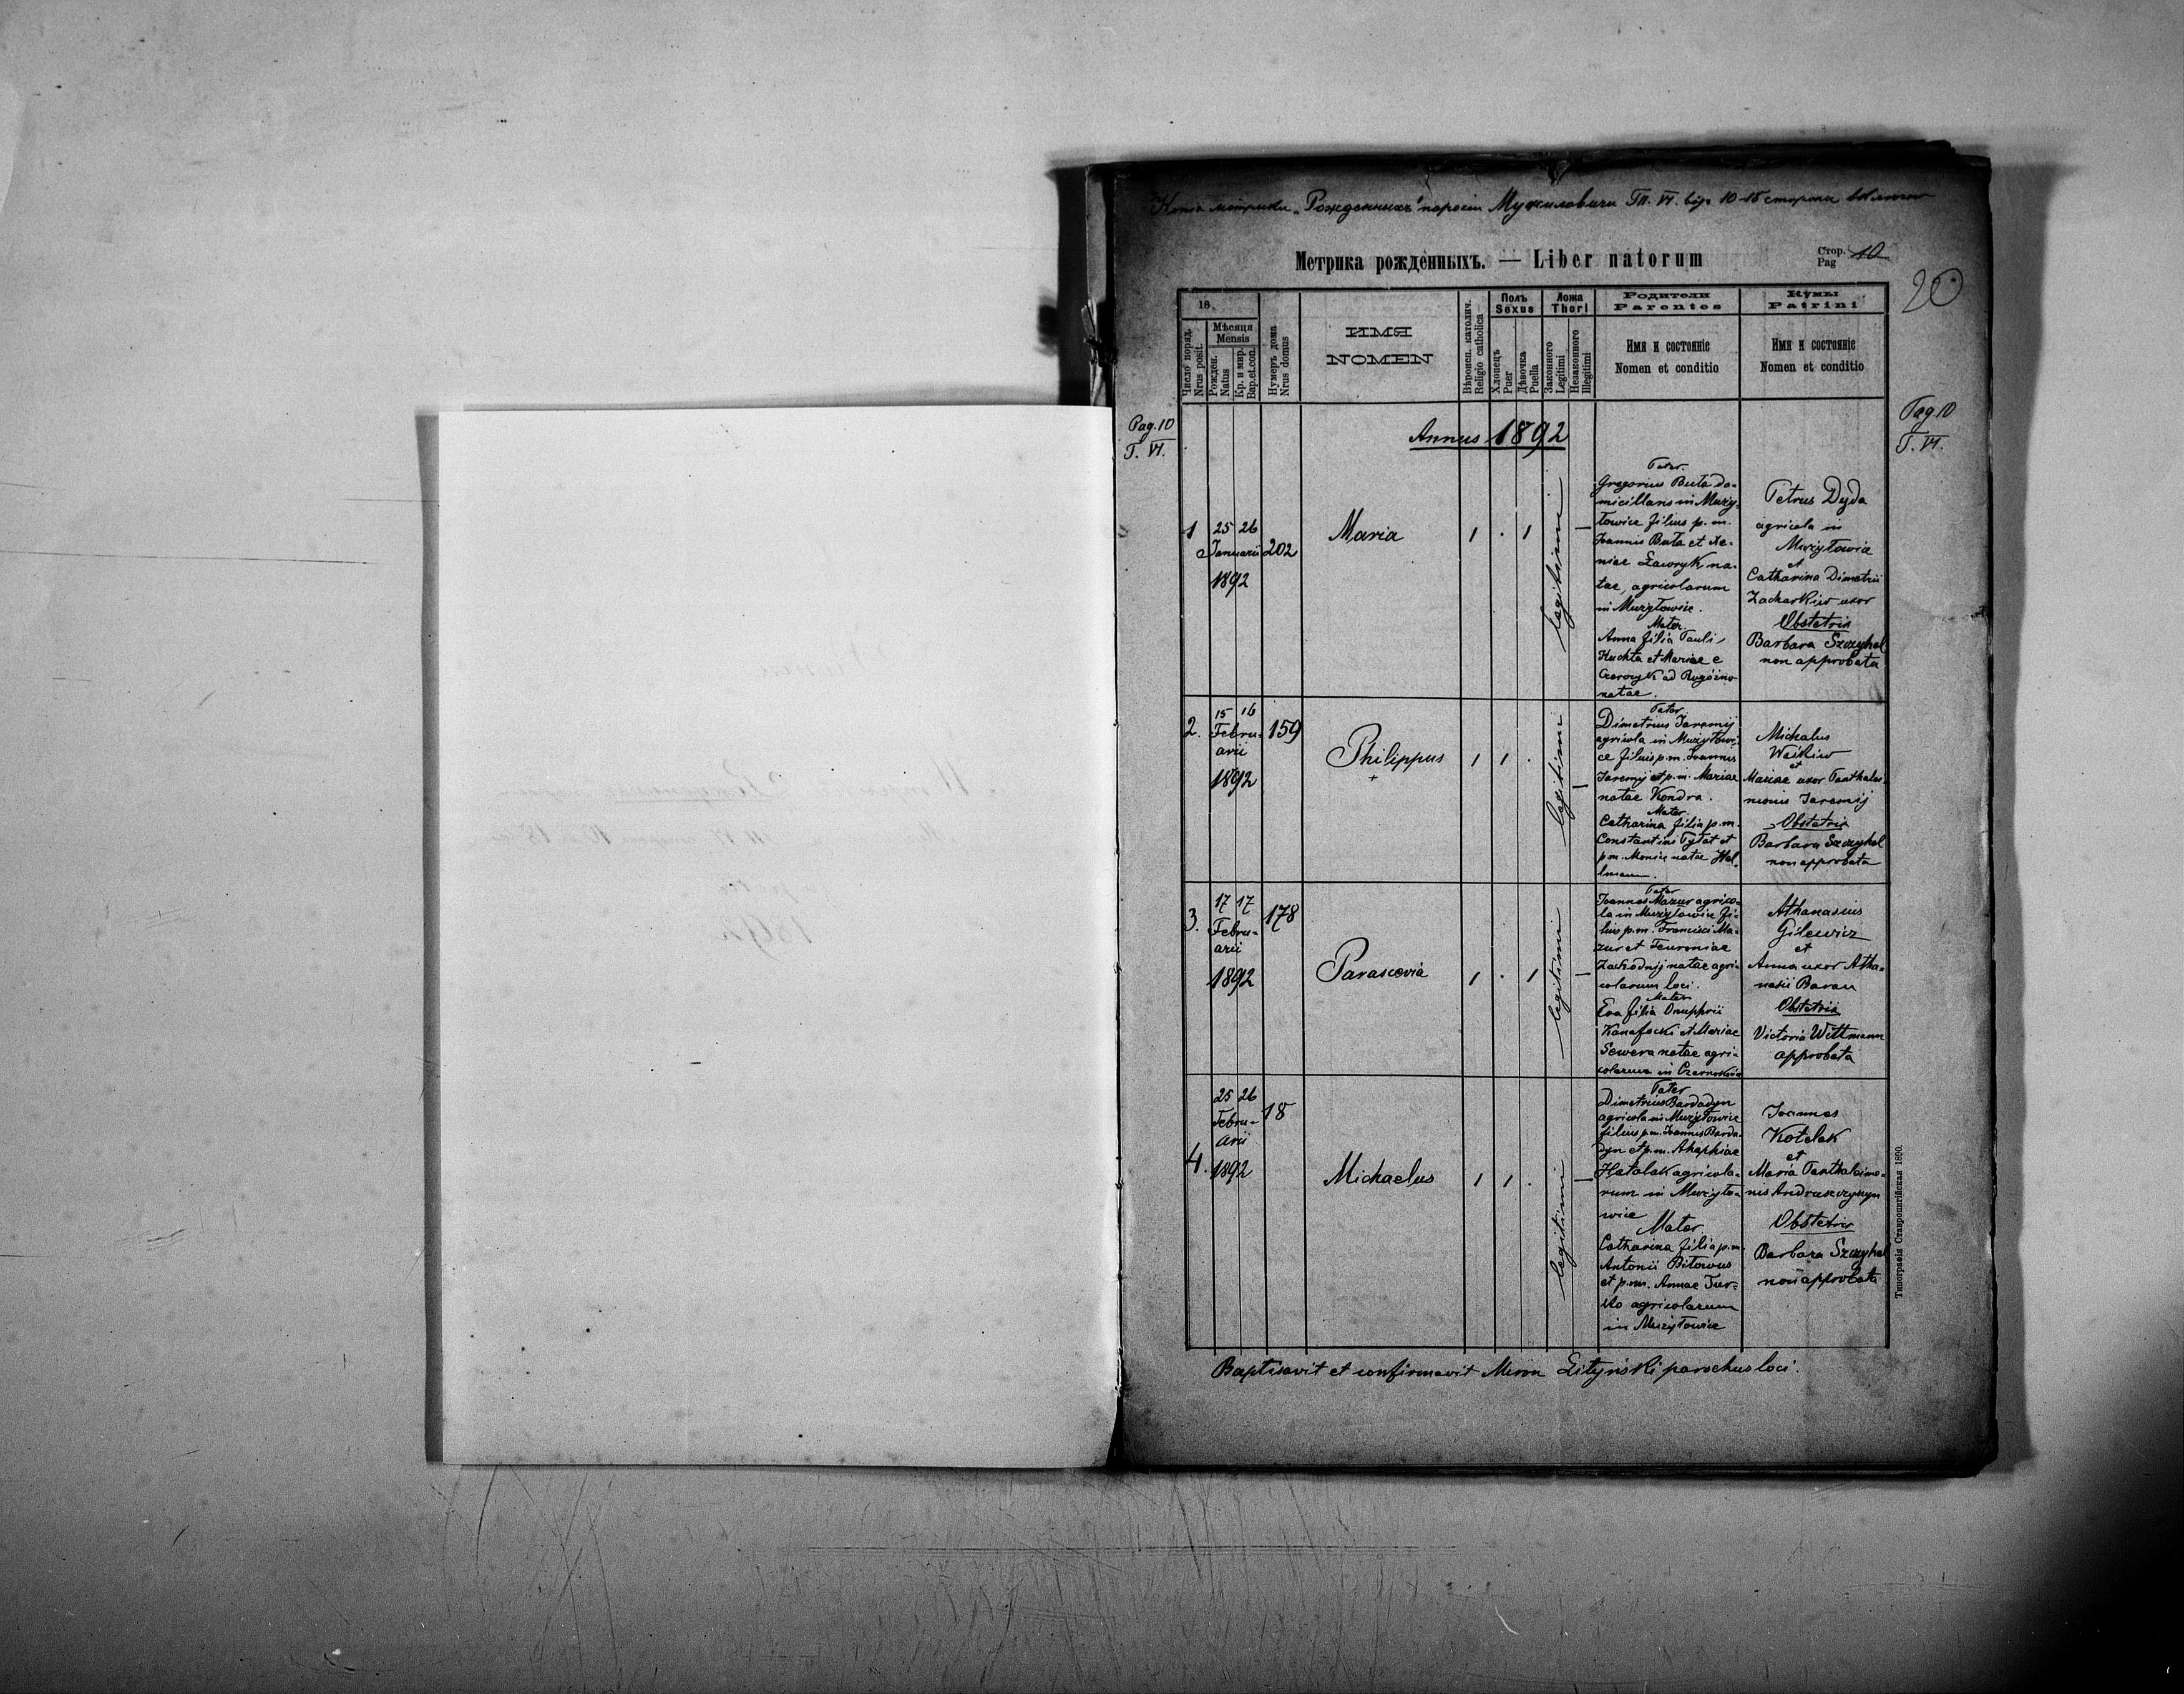 Копія метрики „Рожденныхъ" парохіи Мужиловичи Тп. VI. 10-15 сторона
Метрика рожденныхъ. — Liber natorum
Стор. 10
Pag
20
18
Число поряд.
Nrus posit.
Мѣсяця
Mensis
Рожден.
Natus
Кр. и мир.
Bap.et.con.
Нумеръ дома
Nrus domus
ИМЯ
NOMEN
Вѣроисп. католич.
Religio catholica
Полъ
Sexus
Хлопецъ
Puer
Дѣвочка
Puella
Ложа
Thori
Законного
Legitimi
Незаконного
Illegitimi
Родители
Parentes
Имя и состоянiе
Nomen et conditio
Кумы
Patrini
Имя и состоянiе
Nomen et conditio
Pag. 10
T. VI.
Annus 1892
Pag. 10
T. VI.
1
25 26
Januarii
1892
202
Maria
1 . 1
legitimi
—
Pater.
Gregorius Buta do-
micillans in Muży-
łowice filius p. m.
Joannis Buta et Xe-
niae Ławryk na-
tae, agricolarum
in Mużyłowice.
Mater.
Anna filia Pauli
Huchta et Mariae e
ad Rogóżno
natae.
Petrus Dyda
agricola in
Mużyłowice
et
Catharina Dimetrii
Zacharkiw uxor
Obstetrix
Barbara Szczyhel
non approbata
2.
15 16
Febru-
arii
1892
159
Philippus
+
1 1 .
legitimi
—
Pater
Dimetrius Jaremij
agricola in Mużyłowi-
ce filius p.m. Joannis
Jaremij et p.m. Mariae
natae Kondra.
Mater.
Catharina filia p.m.
Constantini Tytat et
p.m. natae Hel-
man.
Michalus
Waśkiw
et
Mariae uxor Panthalei-
monis Jaremij
Obstetrix
Barbara Szczyhel
non approbata
3.
17 17
Febru-
arii
1892
178
Parascevia
1 . 1
legitimi
—
Pater
Joannes Mazur agrico-
la in Mużyłowice fi-
lius p.m. Francisci Ma-
zur et Feuroniae
Zachodnij natae agri-
colarum loci.
Mater
Eva filia Onuphrii
Kanafocki et Mariae
Sewera natae agri-
colarum in
Athanasius
Gilewicz
et
Anna uxor Atha-
nasii Baran
Obstetrix
Victoria Wittmann
approbata
4.
25 26
Febru-
arii
1892
18
Michaelus
1 1 .
legitimi
—
Pater
Dimetrius Bardadyn
agricola in Mużyłowice
filius p.m. Joannis Barda-
dyn et p.m. Ahaphiae
Hatalak agricola-
rum in Mużyło-
wice
Mater
Catharina filia p.m.
Antonii Bitowus
et p.m. Annae Tur-
ko agricolarum
in Mużyłowice
Joannes
Kotelak
et
Maria Panthaleimo-
nis Andruszczyszyn
Obstetrix
Barbara Szczyhel
non approbata
Типографія Ставропигійская 1890.
Baptisavit et confirmavit Miron Lityński parochus loci.